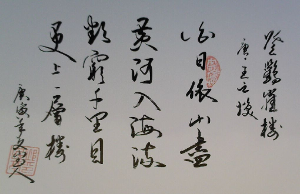 登鸛雀樓
唐 王之渙
白日依山盡
黃河入海流
欲窮千里目
更上一層樓
庚寅年